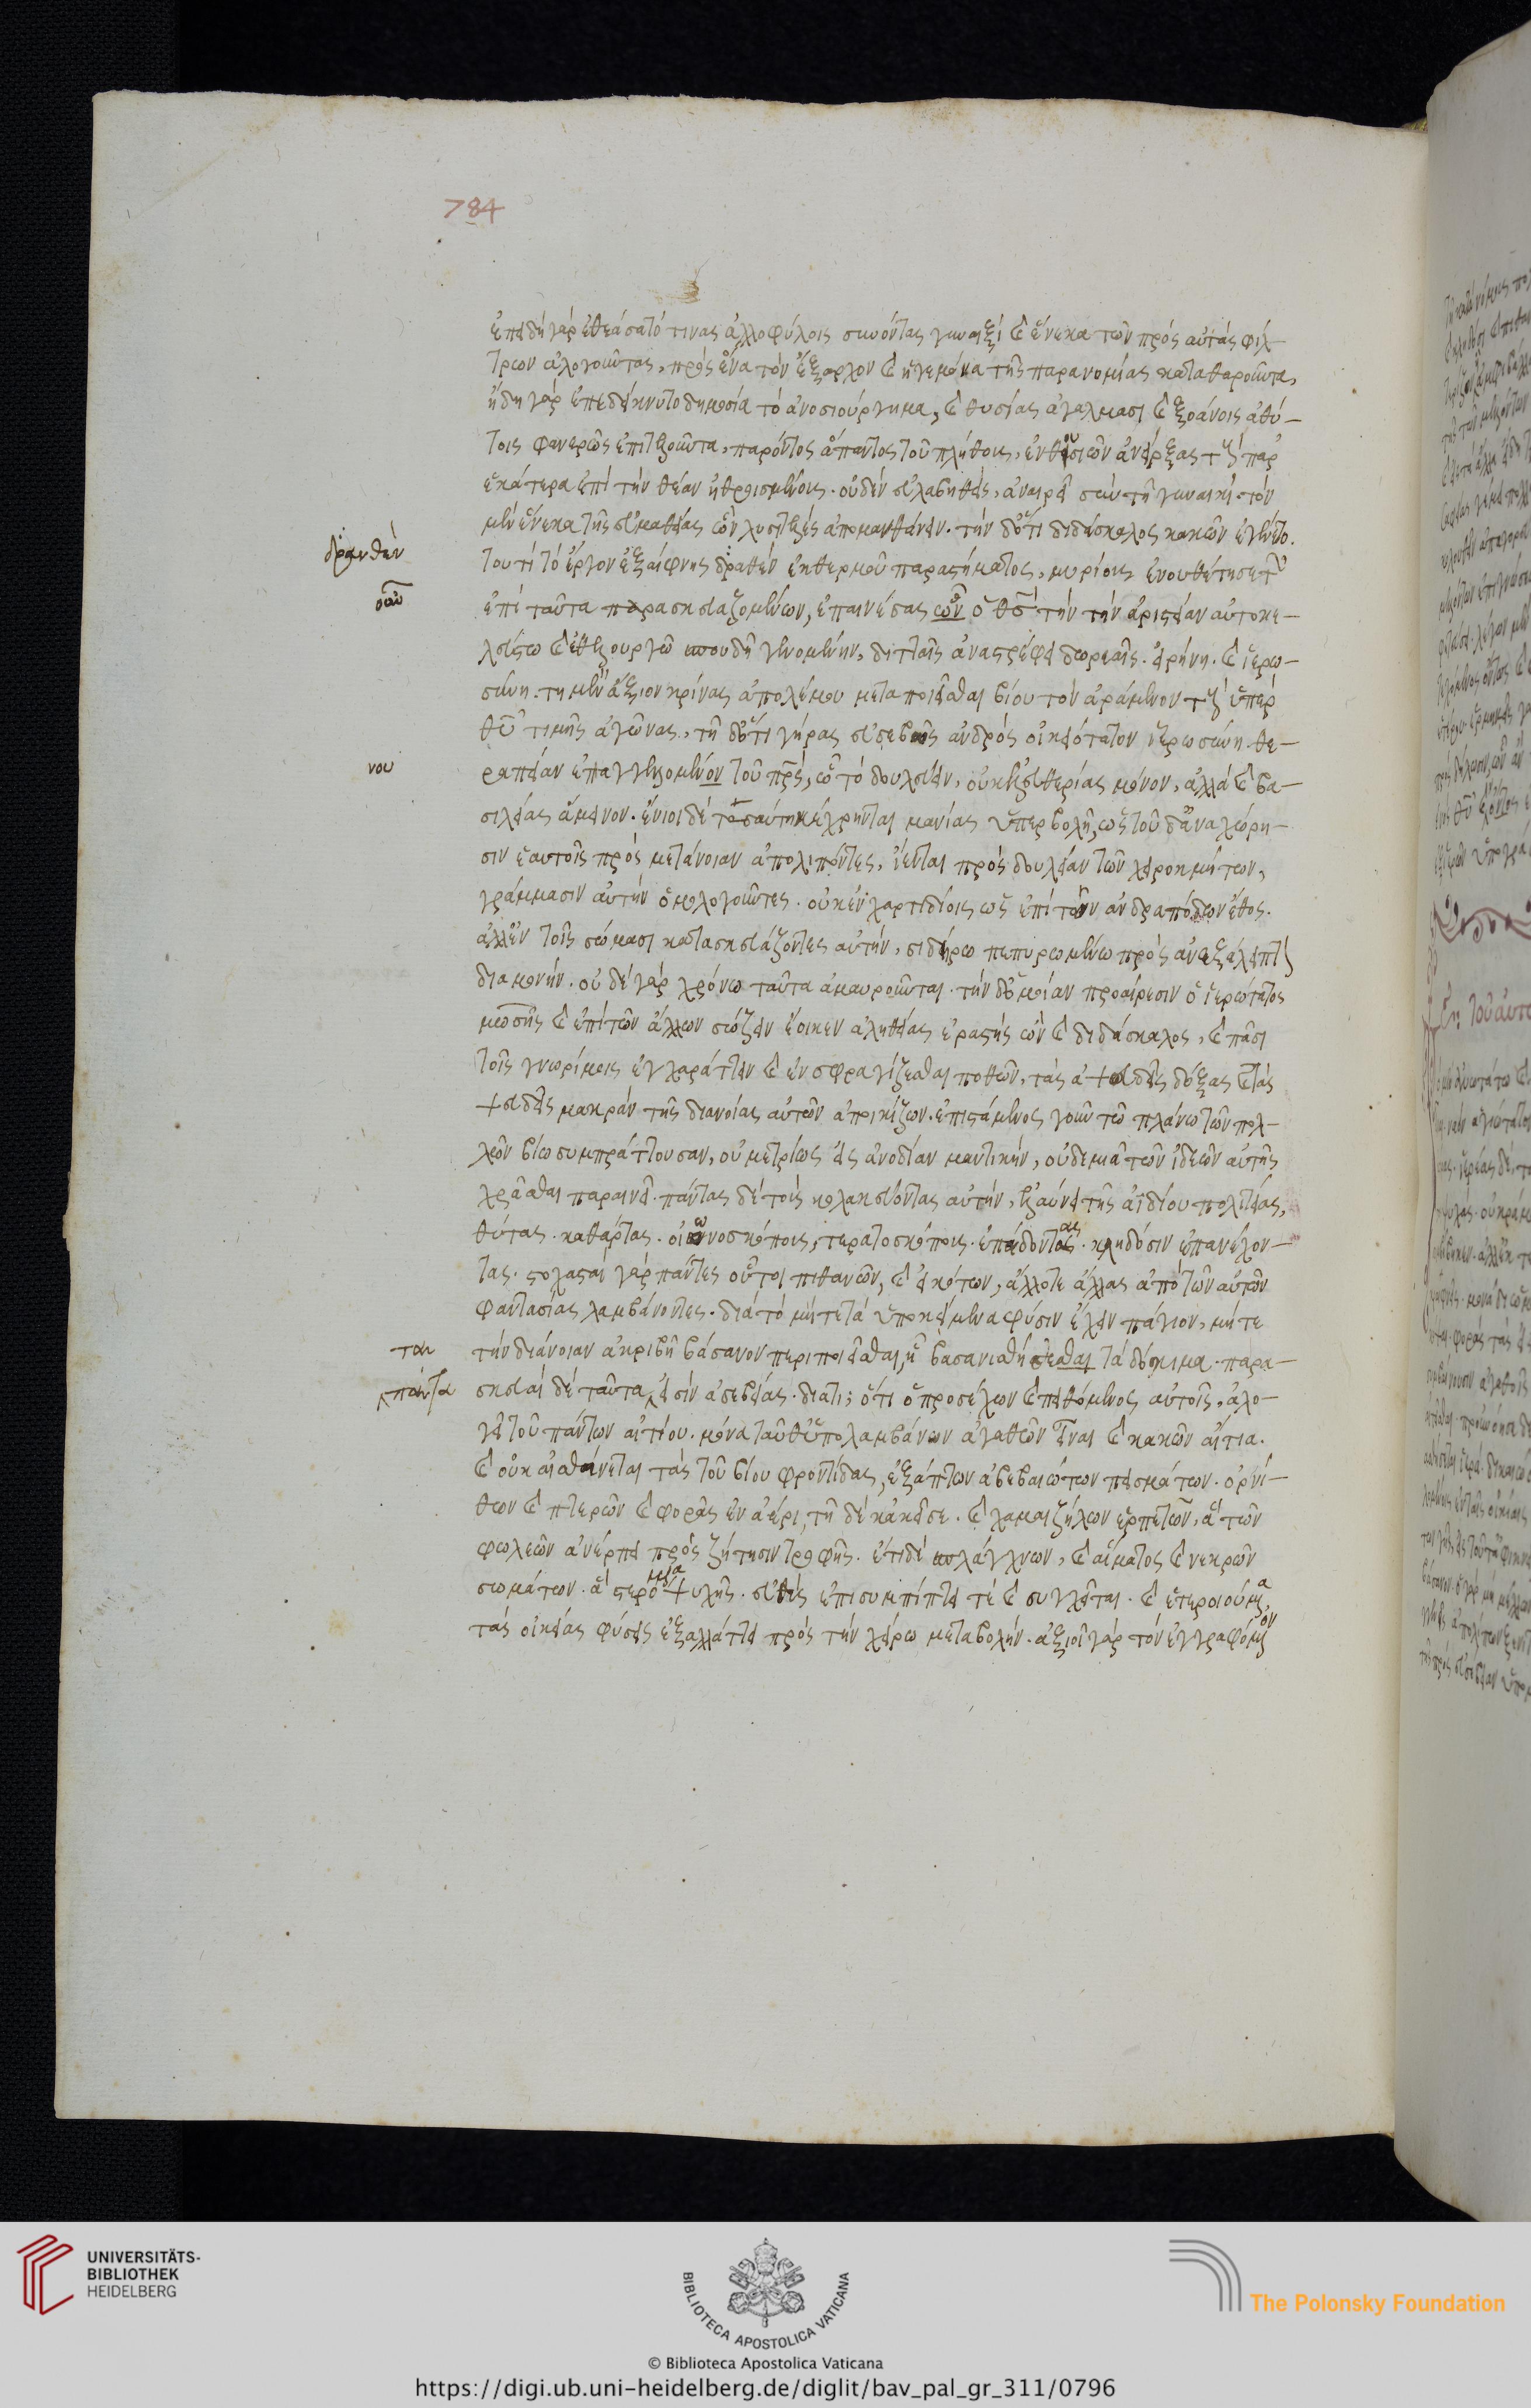 784
ἐπειδὴ γὰρ ἐθεάσατό τινας ἀλλοφύλοις συνόντας γυναιξὶ καὶ ἕνεκα τῶν πρὸς αὐτὰς φίλ-
τρων ἀλογοῦντας, πρὸς ἕνα τὸν ἔξαρχον καὶ ἡγεμόνα τῆς παρανομίας καταθαροῦντα,
ἤδη γὰρ ἐπεδείκνυτο δημοσία τὸ ἀνοσιούργημα, καὶ θυσίας ἀγάλμασι καὶ ξοάνοις ἀθύ-
τοις φανερῶς ἐπιτελοῦντα, παρόντος ἅπαντος τοῦ πλήθους, ἐνθουσιῶν ἀνείρξας τοὺς παρ'
ἑκάτερα ἐπὶ τὴν θέαν ἠθροισμένους. οὐδὲν εὐλαβηθεὶς, ἀναιρεῖ σὺν τῆ γυναικὶ. τὸν
μὲν ἕνεκα τῆς εὐμαθείας ὧν λυσιτελὲς ἀπομανθάνειν. τὴν δ' ὅτι διδάσκαλος κακῶν ἐγένετο.
δρανθὲν τουτὶ τὸ ἔργον ἐξαίφνης δραθὲν ἐκ θερμοῦ παραστήματος, μυρίους ἐνουθέτησε τῶν
οὖν ἐπὶ ταῦτα παρασκευαζομένων, ἐπαινέσας ὧν ὁ θς τὴν τὴν ἀριστείαν αὐτοκε-
λεύστω καὶ ἐθελουργῶ σπουδῆ γενομένην, διτταῖς ἀναστρέφει δωρεαῖς. εἰρήνη. καὶ ἱερω-
σύνη. τῆ μὲν ἄξιον κρίνας ἀπολέμου μεταποιεῖσθαι βίου τὸν ἀράμενον τοὺς ὑπὲρ
θυ τιμῆς ἀγῶνας, τῆ δ' ὅτι γέρας εὐσεβοῦς ἀνδρὸς οἰκειότατον ἱερωσύνη. θε-
νου ραπείαν ἐπαγγελομένον τοῦ πρς, ᾧ τὸ δουλεύειν, οὐκ ἐλευθερίας μόνον, ἀλλὰ καὶ βα-
σιλείας ἄμεινον. ἔνιοι δὲ τοσαύτη κέχρηνται μανίας ὑπερβολῆ, ὡς τοῦ δ' ἀναχώρη-
σιν ἑαυτοῖς πρὸς μετάνοιαν ἀπολιπόντες, ἵενται πρὸς δουλείαν τῶν χειροκμήτων,
γράμμασιν αὐτὴν ὁμολογοῦντες. οὐκ ἐν χαρτιδίοις ὡς ἐπὶ τῶν ἀνδραπόδων ἔθος.
ἀλλ' ἐν τοῖς σώμασι κατασκευάζοντες αὐτὴν, σιδήρω πεπυρωμένω πρὸς ἀνεξάλειπτον
διαμονήν. οὐδὲ γὰρ χρόνω ταῦτα ἀμαυροῦνται. τὴν δ' ὁμοίαν προαίρεσιν ὁ ἱερώτατος
μωσῆς καὶ ἐπὶ τῶν ἄλλων σώζειν ἔοικεν ἀληθείας ἐραστὴς ὢν καὶ διδάσκαλος, καὶ πᾶσι
τοῖς γνωρίμοις ἐγχαράττειν καὶ ἐνσφραγίζεσθαι ποθῶν, τὰς ἀψευδεῖς δόξας καὶ τὰς
ψευδεῖς μακρὰν τῆς διανοίας αὐτῶν ἀποικίζων. ἐπιστάμενος γοῦν τῶ πλάνω τῶν πολ-
λῶν βίω συμπράττουσαν, οὐ μετρίως εἰς ἀνοδίαν μαντικὴν, οὐδεμιᾶ τῶν ἰδεῶν αὐτῆς
χρᾶσθαι παραινεῖ. πάντας δὲ τοὺς κολακεύοντας αὐτὴν, ἐλαύνει τῆς ἀϊδίου πολιτείας,
θύτας. καθάρτας. οἰωνοσκόπους, τερατοσκόπους. ἐπάδοντας. κληδόσιν ἐπανέχον-
τας. στοχασταὶ γὰρ πάντες οὗτοι πιθανῶν, καὶ εἰκότων, ἄλλοτε ἄλλας ἀπὸ τῶν αὐτῶν
φαντασίας λαμβάνοντες. διὰ τὸ μήτε τὰ ὑποκείμενα φύσιν ἔχειν πάγιον, μήτε
ται τὴν διάνοιαν ἀκριβῆ βάσανον περιποιεῖσθαι, ᾗ βασανισθήσεσθαι τὰ δόκιμα. παρα-
πάντα σκευαὶ δὲ ταῦτα εἰσὶν ἀσεβείας. διατι; ὅτι ὁ προσέχων καὶ πειθόμενος αὐτοῖς, ἀλο-
γεῖ τοῦ πάντων αἰτίου. μόνα ταῦθ' ὑπολαμβάνων ἀγαθῶν εἶναι καὶ κακῶν αἴτια.
καὶ οὐκ αἰσθάνεται τὰς τοῦ βίου φροντίδας, ἐξάπτων ἀβεβαιώτων πεισμάτων. ὀρνί-
θων καὶ πτερῶν καὶ φορᾶς ἐν ἀέρι, τῆ δὲ κἀκεῖσε. καὶ χαμαιζήλων ἑρπετῶν, ἃ τῶν
φωλεῶν ἀνέρπει πρὸς ζήτησιν τροφῆς. ἔτι δὲ σπλάγχνων, καὶ αἵματος καὶ νεκρῶν
σωμάτων. ἃ στερόμενα ψυχῆς. εὐθὺς ἐπισυμπίπτει τὲ καὶ συγχεῖται. καὶ ἑτεροιούμενα,
τὰς οἰκείας φύσεις ἐξαλλάττει πρὸς τὴν χείρω μεταβολήν. ἀξιοῖ γὰρ τὸν ἐγγραφόμενον
UNIVERSITÄTS-
BIBLIOTHEK
HEIDELBERG
BIBLIOTECA APOSTOLICA VATICANA
The Polonsky Foundation
© Biblioteca Apostolica Vaticana
https://digi.ub.uni-heidelberg.de/diglit/bav_pal_gr_311/0796